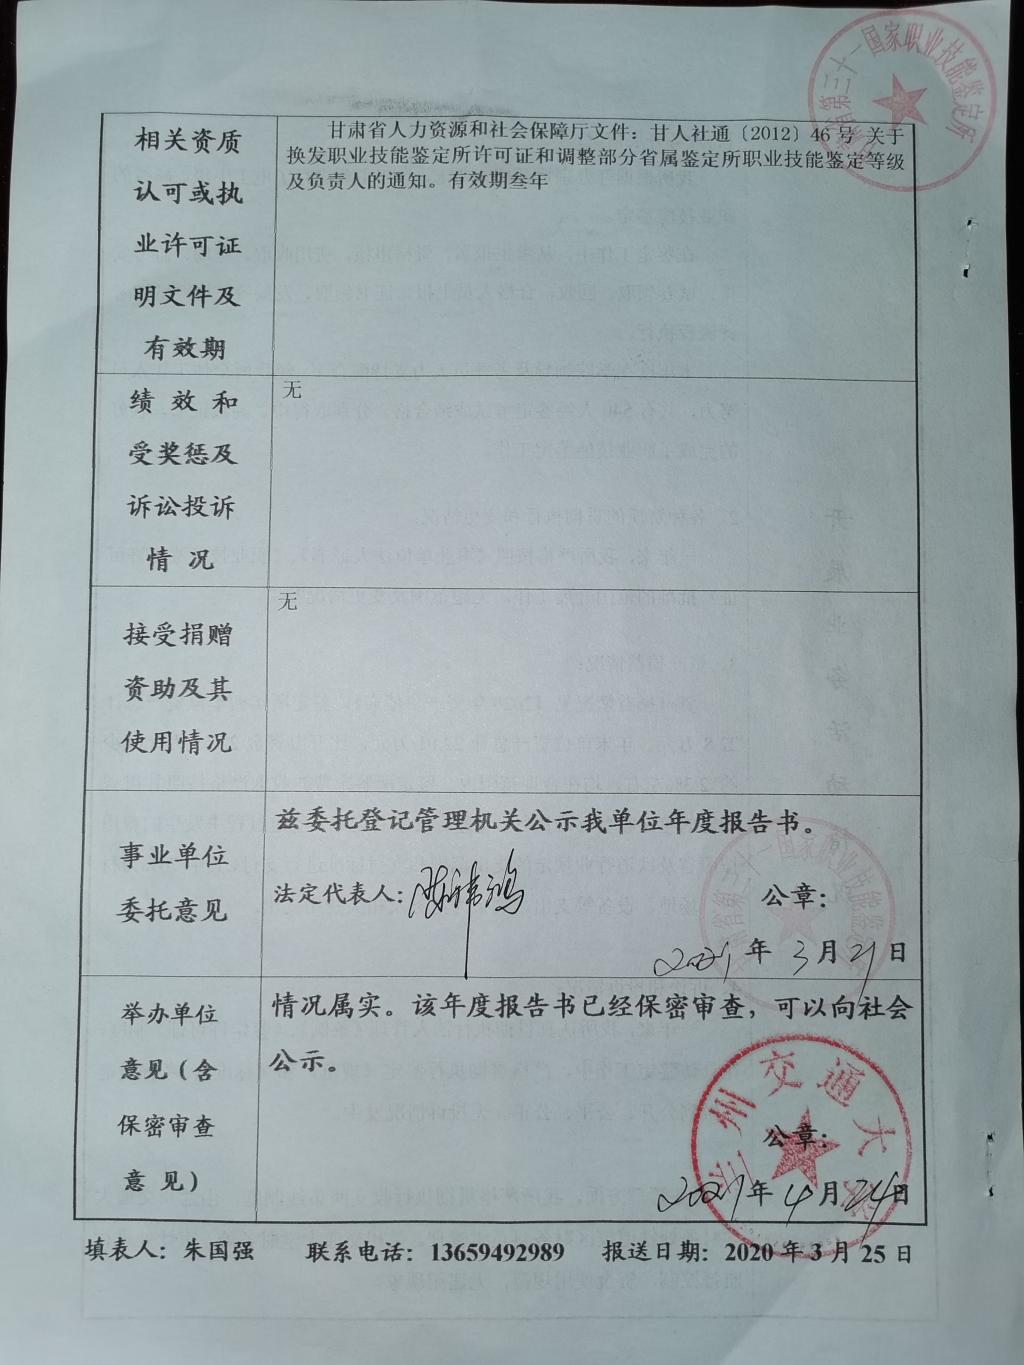 国家职业技能鉴定所
相关资质
认可或执
业许可证
明文件及
有效期
甘肃省人力资源和社会保障厅文件：甘人社通〔2012〕46 号 关于
换发职业技能鉴定所许可证和调整部分省属鉴定所职业技能鉴定等级
及负责人的通知。有效期叁年
绩 效 和
受奖惩及
诉讼投诉
情 况
无
接受捐赠
资助及其
使用情况
无
事业单位
委托意见
兹委托登记管理机关公示我单位年度报告书。
法定代表人：
公章：
2021 年 3 月 21 日
举办单位
意见（含
保密审查
意 见）
情况属实。该年度报告书已经保密审查，可以向社会
公示。
兰州交通大学
公章：
2021 年 4 月 24 日
填表人：朱国强 联系电话：13659492989 报送日期：2020 年 3 月 25 日